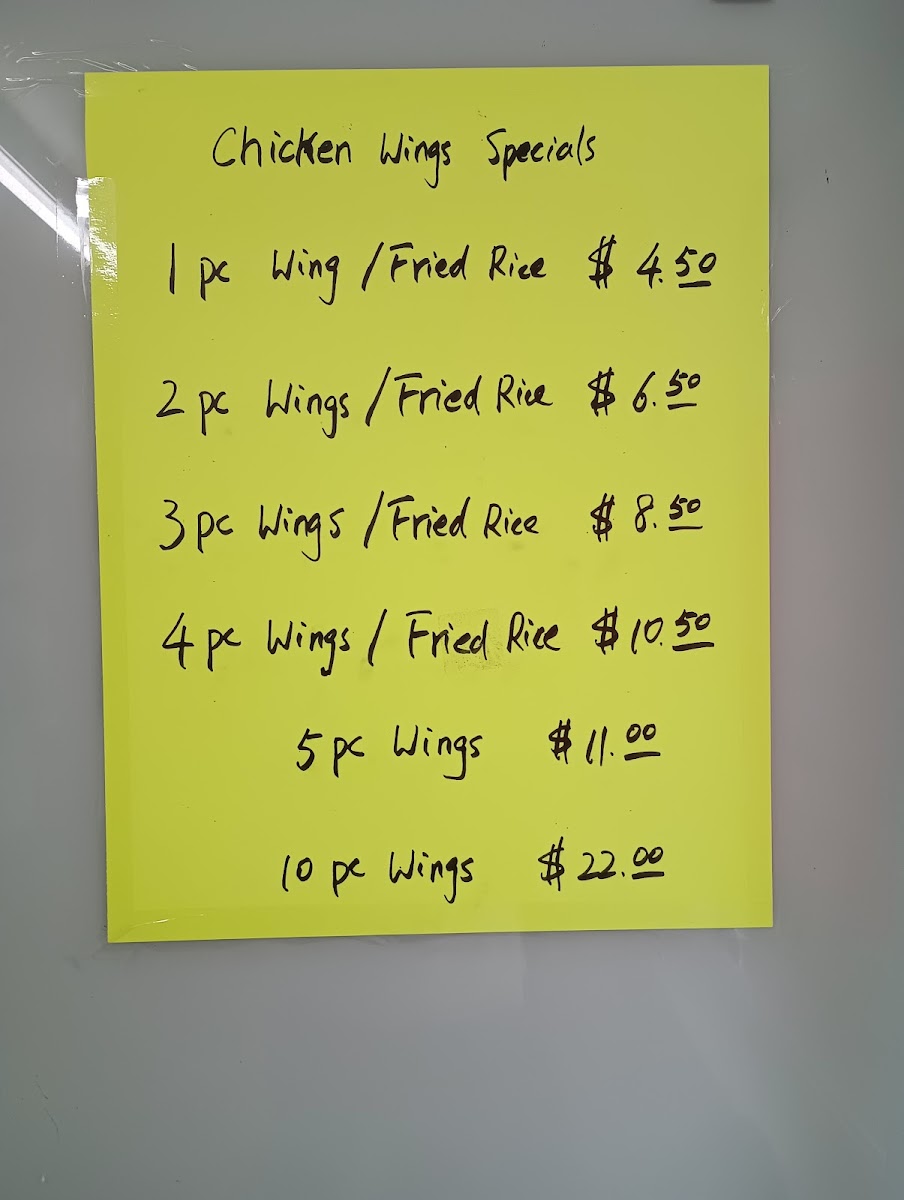 Chicken Wings Specials
1 pc Wing / Fried Rice $ 4.50
2 pc Wings / Fried Rice $ 6.50
3 pc Wings / Fried Rice $ 8.50
4 pc Wings / Fried Rice $ 10.50
5 pc Wings $ 11.00
10 pc Wings $ 22.00